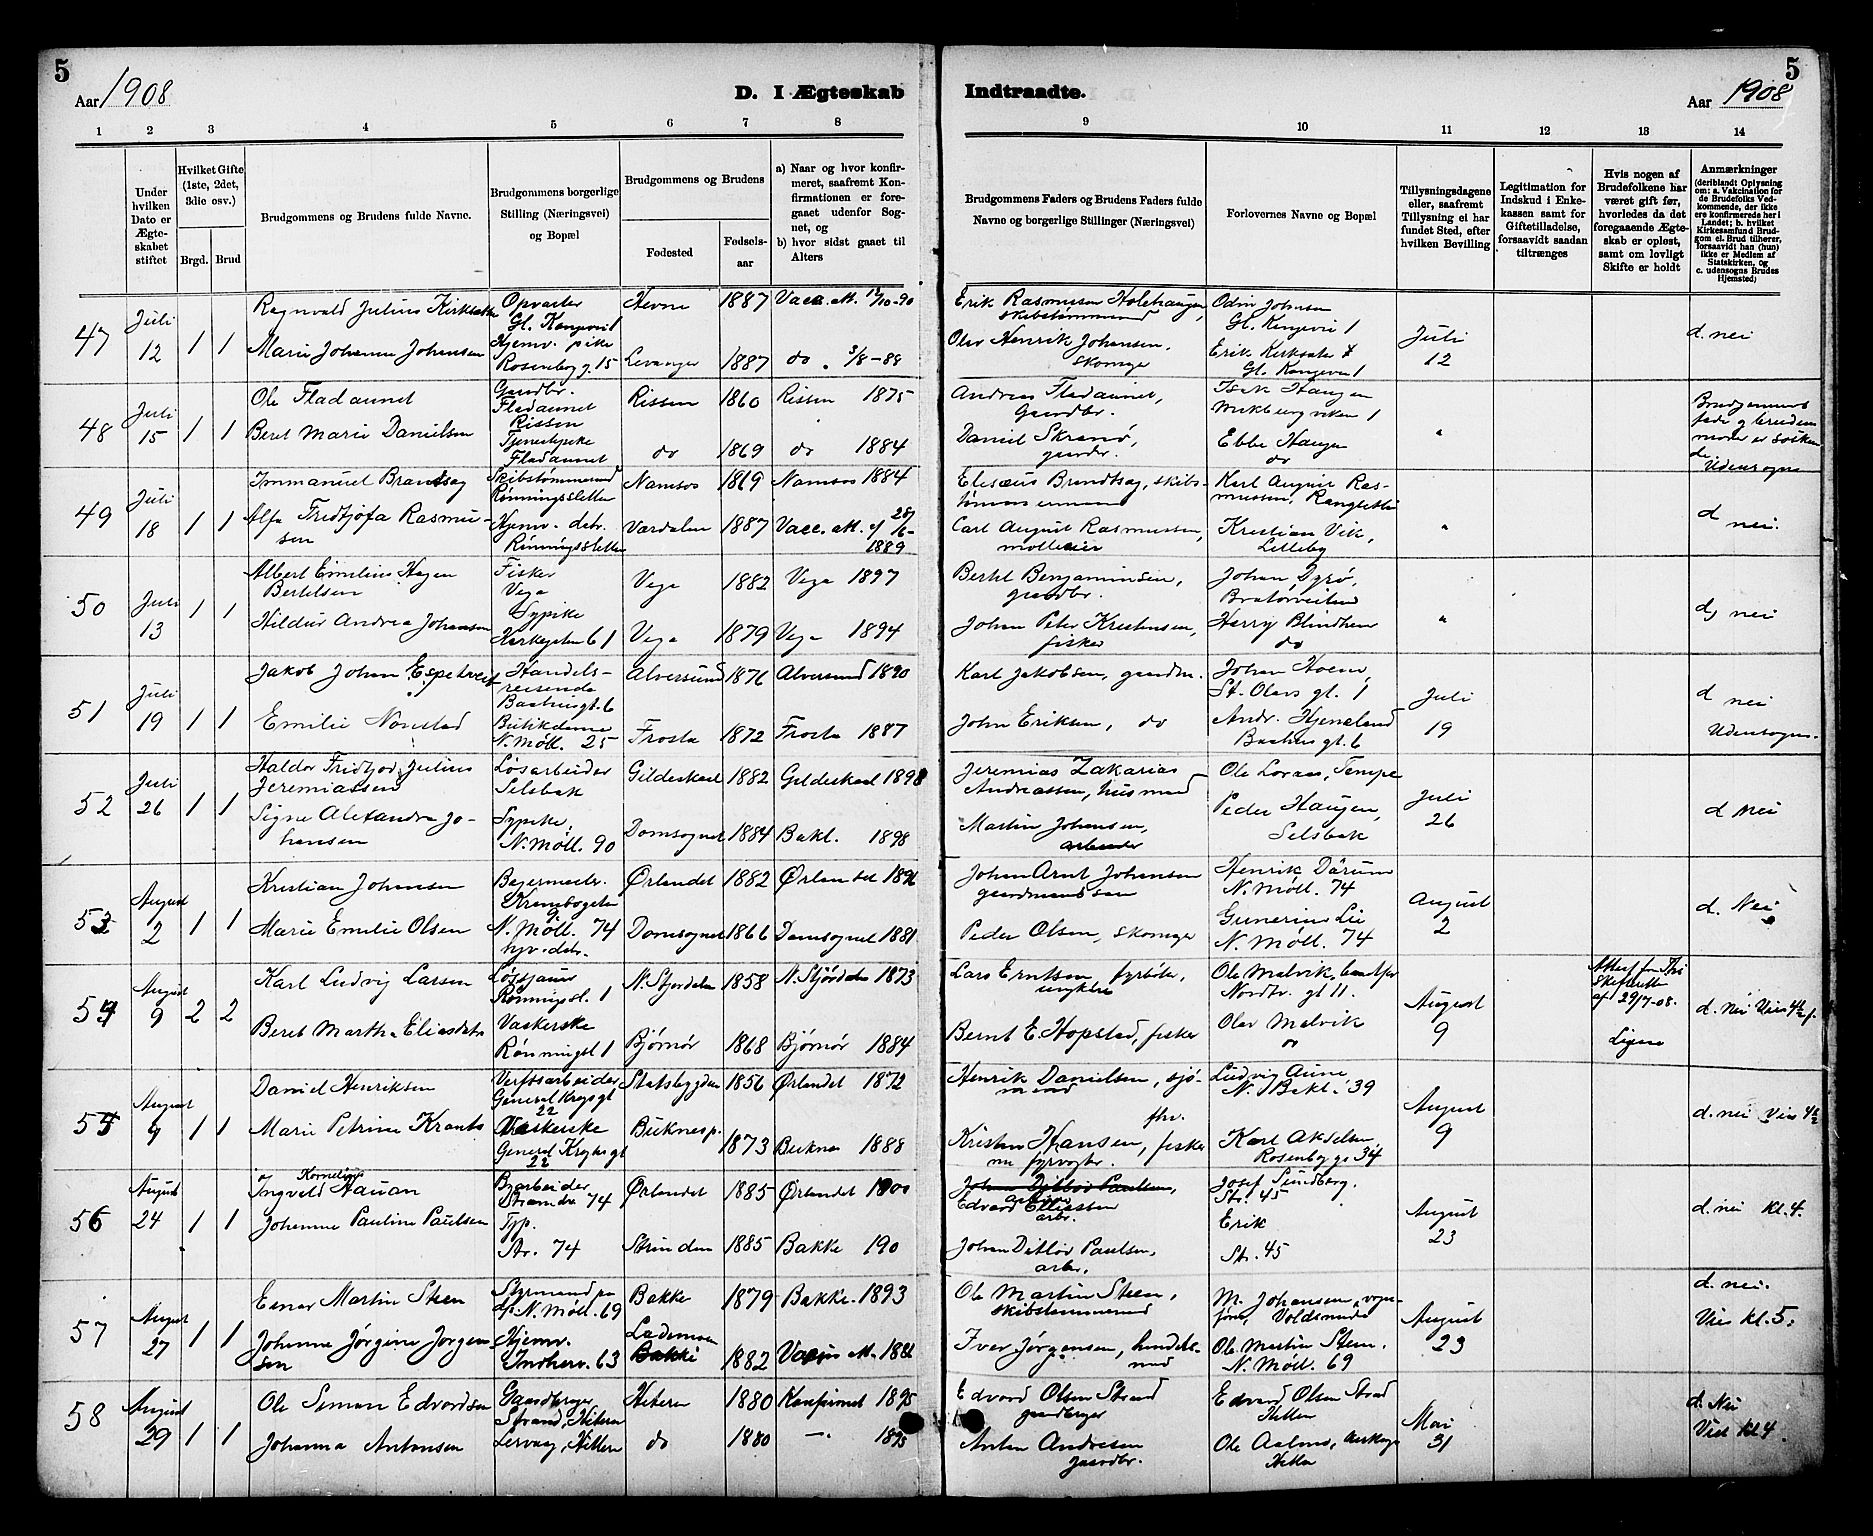 5
Aar 1908
D. I Ægteskab
Indtraadte.
5
Aar 1908
1 2 3 4 5 6 7 8 9 10 11 12 13 14
Under hvilken Dato er Ægteskabet stiftet
Hvilket Gifte (1ste, 2det, 3die osv.)
Brgd.
Brud
Brudgommens og Brudens fulde Navne.
Brudgommens borgerlige Stilling (Næringsvei) og Bopæl
Brudgommens og Brudens
Fødested
Fødselsaar
a) Naar og hvor konfirmeret, saafremt Konfirmationen er foregaaet udenfor Sognet, og
b) hvor sidst gaaet til Alters
Brudgommens Faders og Brudens Faders fulde Navne og borgerlige Stillinger (Næringsvei)
Forlovernes Navne og Bopæl
Tillysningsdagene eller, saafremt Tillysning ei har fundet Sted, efter hvilken Bevilling
Legitimation for Indskud i Enkekassen samt for Giftetilladelse, forsaavidt saadan tiltrænges
Hvis nogen af Brudefolkene har været gift før, hvorledes da det foregaaende Ægteskab er opløst, samt om lovligt Skifte er holdt
Anmærkninger
(deriblandt Oplysning om: a. Vakcination for de Brudefolks Vedkommende, der ikke ere konfirmerede her i Landet; b. hvilket Kirkesamfund Brudgom el. Brud tilhører, forsaavidt han (hun) ikke er Medlem af Statskirken, og c. udensogns Brudes Hjemsted)
47
Juli 12
1 1
Ragnvald Julius
Opvarter
Gl. Kongevei 1
Hevne 1887 Vacc. att. 12/10-90
Erik Rasmusen Holehaugen, skibstømmermand
Odin Johnsen
Gl. Kongevei 1
Juli 12
d. nei
Marie Johanne Johansen
Hjemv. pike
Rosenborg g. 15
Levanger 1887 do. 3/8-88
Olav Henrik Johansen, skomager
Gl. Kongevei 1
48
Juli 15
1 1
Ole Fladaunet
Gaardbr.
Fladaunet
Rissen
Rissen 1860 Rissen 1875
Andreas Fladaunet, Gaardbr.
Isak Haugen
1
"
Beret Marie Danielsen
Tjenestpike
Fladaunet
do 1869 do 1884
Daniel Skramø, gaardbr.
Ebbe Haugen
do
Udensogns
49
Juli 18
1 1
Immanuel
Skibstømmermand
Rønningsletten
Namsos 1869 Namsos 1884
Karl August Rasmussen,
"
d nei.
Alfa Fridtjofa Rasmussen
Hjemv. datr.
Rønningsletten
Værdalen 1887 Vacc. att. 1889
Carl August Rasmussen, mølleeier
Kristian Vik, Lilleby
50
Juli 13
1 1
Albert Emilius Hagen Bertelsen
Fisker
Vega
Vega 1882 Vega 1897
Bertel Benjaminsen, gaardbr.
Johan Dyrø,
"
d, nei
Hildur Andrea Johansen
Sypike
Vega 1879 Vega 1894
Johan Peter Kristensen, fisker
Harry Blindheim
do
51
Juli 19
1 1
Jakob Johan Espetveit
Handelsreisende
Alversund 1876 Alversund 1890
Karl Jakobsen, gaardm.
Johan Hoem,
St. Olavs gt. 1
Juli 19
d nei
Udensogns.
Emilie Norestad
Butikdame
N. Møll. 25
Frosta 1872 Frosta 1887
John Eriksen, do
52
Juli 26
1 1
Haldor Fridtjov Julius Jeremiassen
Løsarbeider
Selsbak
Gildeskaal 1882 Gildeskaal 1898
Jeremias Zakarias Andreassen, husmand
Tempe
Juli 26
d nei
Signe Alexandra Johansen
Sypike,
N. Møll. 90
Domsognet 1884 Bakl. 1898
Martin Johansen, arbeider
Peder Haugen, Selsbak
53
August 2
1 1
Kristian Johansen
Ørlandet 1882 Ørlandet 1896
Johan Arnt Johansen
Henrik Dårum
N. Møll. 74
August 2
d. Nei
Marie Emilie Olsen
N. Møll. 74
Domsognet 1866 Domsognet 1881
Peder Olsen, skomager
Gunerius Lie
N. Møll. 74
54
August 9
2 2
Karl Ludvig Larsen
Rønningsl. 1
N. Stjørdalen 1858 N. Stjørdalen 1873
Lars Erntsen, fyrbøter, ungkar
Ole Malvik,
Nordtv. gt 11.
August 9
af 29/7-08.
d. nei
Beret Marthe Eliasdatr
Vaskerske
Rønningsl 1
Bjørnør 1868 Bjørnør 1884
Bernt E. Hopstad, fisker
Olav Malvik
do
55
August 9
1 1
Daniel Henriksen
Verftsarbeider
General Kryhsgt 22
Statsbygden 1856 Ørlandet 1872
Henrik Danielsen, sjømand
Ludvig Aune
N. Bakl. 39
August 9
d. nei
Marie Petrine Krants
Vaskerske
General Kryhsgt 22
1873 1888
Kristen Hansen, fisker
Karl Akselsen,
Rosenborg g. 34
56
August 24
1 1
Ingvald Kornelius Hauan
Byarbeider
Strandv. 74
Ørlandet 1885 Ørlandet 1900
Edvard Elliassen arbr.
Josef Sundberg.
Str. 45
August 23
d. nei kl. 4.
Johanne Pauline Paulsen
Str. 74
Strinden 1885 Bakke 190
Johan Ditlov Paulsen, arbr.
Erik
Str. 45
57
August 27
1 1
Einar Martin Steen
Styrmand
N. Møll. 69
Bakke 1879 Bakke. 1893
Ole Martin Steen, skibstømmermand
M. Johansen,
Voldsminde
August 23
d. nei.
Vies kl. 5.
Johanne Jørgine Jørgensen
Hjemv.
Indherv. 63
Lademoen
1882
Iver Jørgensen, handelsmand
Ole Martin Steen,
N. Møll. 69
58
August 29
1 1
Ole Simon Edvardsen
Gaardbruger
Strand, Hitteren
Hiteren 1880 Konfirmert 1895
Edvard Olsen Strand gaardbruger
Edvard Olsen Strand
Mai 31
d. Nei
Vies kl 4.
Johanna Antonsen
Lervaag, Hitteren
do 1880 1895
Anton Andresen gaardbr.